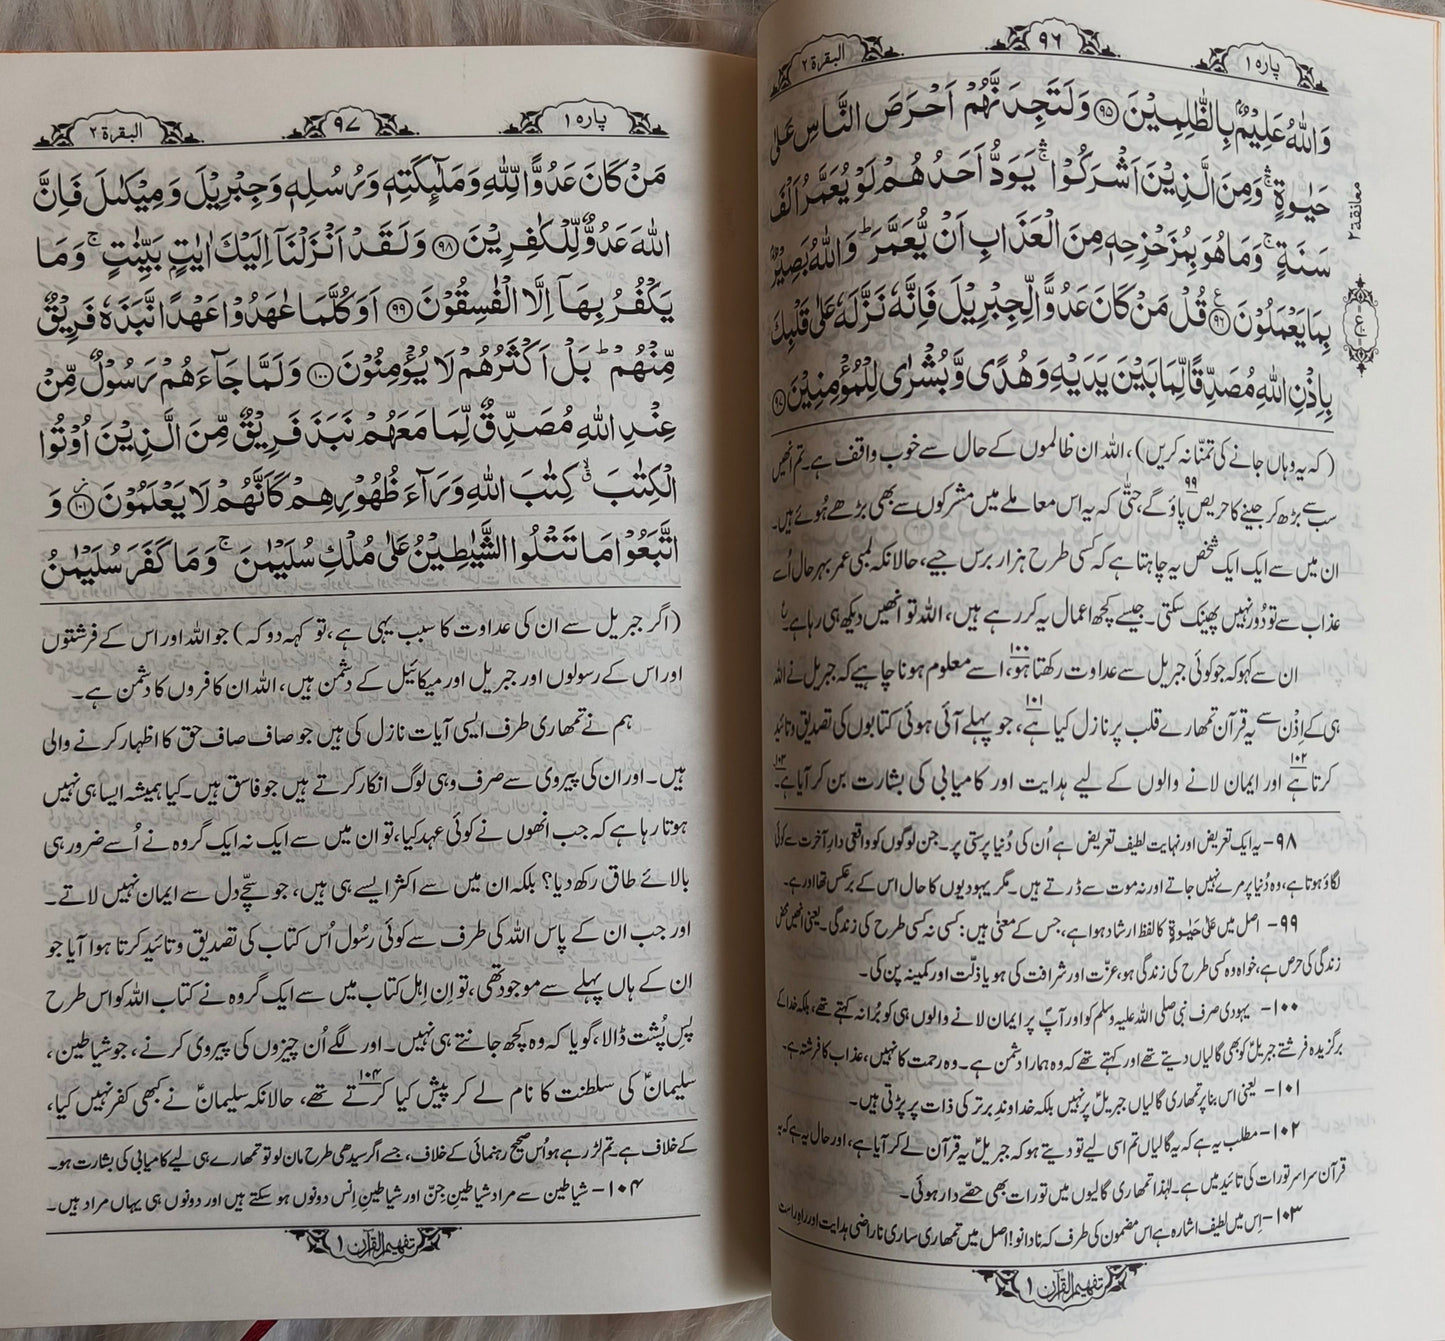 پارہ ۱
۹۶
البقرۃ ۲
وَاللّٰهُ عَلِیْمٌۢ بِالظّٰلِمِیْنَ ﴿۹۵﴾ وَلَتَجِدَنَّهُمْ اَحْرَصَ النَّاسِ عَلٰی
حَیٰوةٍ ۛۚ وَمِنَ الَّذِیْنَ اَشْرَكُوْا ۛۚ یَوَدُّ اَحَدُهُمْ لَوْ یُعَمَّرُ اَلْفَ
سَنَةٍ ۚ وَمَا هُوَ بِمُزَحْزِحِهٖ مِنَ الْعَذَابِ اَنْ یُّعَمَّرَ ؕ وَاللّٰهُ بَصِیْرٌۢ
بِمَا یَعْمَلُوْنَ ﴿۹۶﴾ قُلْ مَنْ كَانَ عَدُوًّا لِّجِبْرِیْلَ فَاِنَّهٗ نَزَّلَهٗ عَلٰی قَلْبِكَ
بِاِذْنِ اللّٰهِ مُصَدِّقًا لِّمَا بَیْنَ یَدَیْهِ وَهُدًی وَّبُشْرٰی لِلْمُؤْمِنِیْنَ ﴿۹۷﴾
معانقة ۲
(کہ یہ وہاں جانے کی تمنّا نہ کریں)، اللہ ان ظالموں کے حال سے خوب واقف ہے۔ تم انھیں
سب سے بڑھ کر جینے کا حریص پاؤ گے۹۹، حتّٰی کہ یہ اس معاملے میں مشرکوں سے بھی بڑھے ہُوئے ہیں۔
ان میں سے ایک ایک شخص یہ چاہتا ہے کہ کسی طرح ہزار برس جیے، حالانکہ لمبی عمر بہرحال اُسے
عذاب سے تو دُور نہیں پھینک سکتی۔ جیسے کچھ اعمال یہ کر رہے ہیں، اللہ تو انھیں دیکھ ہی رہا ہے۔ ع
ان سے کہو کہ جو کوئی جبریل سے عداوت رکھتا ہو۱۰۰، اسے معلوم ہونا چاہیے کہ جبریل نے اللہ
ہی کے اِذن سے یہ قرآن تمھارے قلب پر نازل کیا ہے۱۰۱، جو پہلے آئی ہوئی کتابوں کی تصدیق و تائید
کرتا ہے۱۰۲ اور ایمان لانے والوں کے لیے ہدایت اور کامیابی کی بشارت بن کر آیا ہے۱۰۳۔
۹۸- یہ ایک تعریض اور نہایت لطیف تعریض ہے اُن کی دُنیا پرستی پر۔ جن لوگوں کو واقعی دارِ آخرت سے کوئی
لگاؤ ہوتا ہے، وہ دُنیا پر مرے نہیں جاتے اور نہ موت سے ڈرتے ہیں۔ مگر یہودیوں کا حال اس کے برعکس تھا اور ہے۔
۹۹- اصل میں عَلٰی حَیٰوةٍ کا لفظ ارشاد ہوا ہے، جس کے معنیٰ ہیں: کسی نہ کسی طرح کی زندگی۔ یعنی انھیں محض
زندگی کی حرص ہے، خواہ وہ کسی طرح کی زندگی ہو، عزّت اور شرافت کی ہو یا ذلّت اور کمینہ پن کی۔
۱۰۰- یہودی صرف نبی صلی اللہ علیہ وسلم کو اور آپؐ پر ایمان لانے والوں ہی کو بُرا نہ کہتے تھے، بلکہ خدا کے
برگزیدہ فرشتے جبریلؑ کو بھی گالیاں دیتے تھے اور کہتے تھے کہ وہ ہمارا دشمن ہے۔ وہ رحمت کا نہیں، عذاب کا فرشتہ ہے۔
۱۰۱- یعنی اس بنا پر تمھاری گالیاں جبریلؑ پر نہیں بلکہ خداوندِ برتر کی ذات پر پڑتی ہیں۔
۱۰۲- مطلب یہ ہے کہ یہ گالیاں تم اسی لیے تو دیتے ہو کہ جبریلؑ یہ قرآن لے کر آیا ہے، اور حال یہ ہے کہ یہ
قرآن سراسر تورات کی تائید میں ہے۔ لہٰذا تمھاری گالیوں میں تورات بھی حصّے دار ہوئی۔
۱۰۳- اِس میں لطیف اشارہ ہے اس مضمون کی طرف کہ نادانو! اصل میں تمھاری ساری ناراضی ہدایت اور راہِ راست
تفہیم القرآن ۱
پارہ ۱
۹۷
البقرۃ ۲
مَنْ كَانَ عَدُوًّا لِّلّٰهِ وَمَلٰٓئِكَتِهٖ وَرُسُلِهٖ وَجِبْرِیْلَ وَمِیْكٰىلَ فَاِنَّ
اللّٰهَ عَدُوٌّ لِّلْكٰفِرِیْنَ ﴿۹۸﴾ وَلَقَدْ اَنْزَلْنَاۤ اِلَیْكَ اٰیٰتٍۭ بَیِّنٰتٍ ۚ وَمَا
یَكْفُرُ بِهَاۤ اِلَّا الْفٰسِقُوْنَ ﴿۹۹﴾ اَوَكُلَّمَا عٰهَدُوْا عَهْدًا نَّبَذَهٗ فَرِیْقٌ
مِّنْهُمْ ؕ بَلْ اَكْثَرُهُمْ لَا یُؤْمِنُوْنَ ﴿۱۰۰﴾ وَلَمَّا جَآءَهُمْ رَسُوْلٌ مِّنْ
عِنْدِ اللّٰهِ مُصَدِّقٌ لِّمَا مَعَهُمْ نَبَذَ فَرِیْقٌ مِّنَ الَّذِیْنَ اُوْتُوا
الْكِتٰبَ ۙۗ كِتٰبَ اللّٰهِ وَرَآءَ ظُهُوْرِهِمْ كَاَنَّهُمْ لَا یَعْلَمُوْنَ ﴿۱۰۱﴾ وَ
اتَّبَعُوْا مَا تَتْلُوا الشَّیٰطِیْنُ عَلٰی مُلْكِ سُلَیْمٰنَ ۚ وَمَا كَفَرَ سُلَیْمٰنُ
(اگر جبریل سے ان کی عداوت کا سبب یہی ہے، تو کہہ دو کہ) جو اللہ اور اس کے فرشتوں
اور اس کے رسولوں اور جبریل اور میکائیل کے دشمن ہیں، اللہ ان کافروں کا دشمن ہے۔
ہم نے تمھاری طرف ایسی آیات نازل کی ہیں جو صاف صاف حق کا اظہار کرنے والی
ہیں۔ اور ان کی پیروی سے صرف وہی لوگ انکار کرتے ہیں جو فاسق ہیں۔ کیا ہمیشہ ایسا ہی نہیں
ہوتا رہا ہے کہ جب انھوں نے کوئی عہد کیا، تو ان میں سے ایک نہ ایک گروہ نے اُسے ضرور ہی
بالائے طاق رکھ دیا؟ بلکہ ان میں سے اکثر ایسے ہی ہیں، جو سچّے دل سے ایمان نہیں لاتے۔
اور جب ان کے پاس اللہ کی طرف سے کوئی رسُول اُس کتاب کی تصدیق و تائید کرتا ہوا آیا جو
ان کے ہاں پہلے سے موجود تھی، تو اِن اہلِ کتاب میں سے ایک گروہ نے کتاب اللہ کو اس طرح
پسِ پُشت ڈالا، گویا کہ وہ کچھ جانتے ہی نہیں۔ اور لگے اُن چیزوں کی پیروی کرنے، جو شیاطین،
سلیمانؑ کی سلطنت کا نام لے کر پیش کیا کرتے تھے۱۰۴، حالانکہ سلیمانؑ نے کبھی کفر نہیں کیا،
کے خلاف ہے۔ تم لڑ رہے ہو اُس صحیح رہنمائی کے خلاف، جسے اگر سیدھی طرح مان لو تو تمھارے ہی لیے کامیابی کی بشارت ہو۔
۱۰۴- شیاطین سے مراد شیاطینِ جنّ اور شیاطینِ اِنس دونوں ہو سکتے ہیں اور دونوں ہی یہاں مراد ہیں۔
تفہیم القرآن ۱